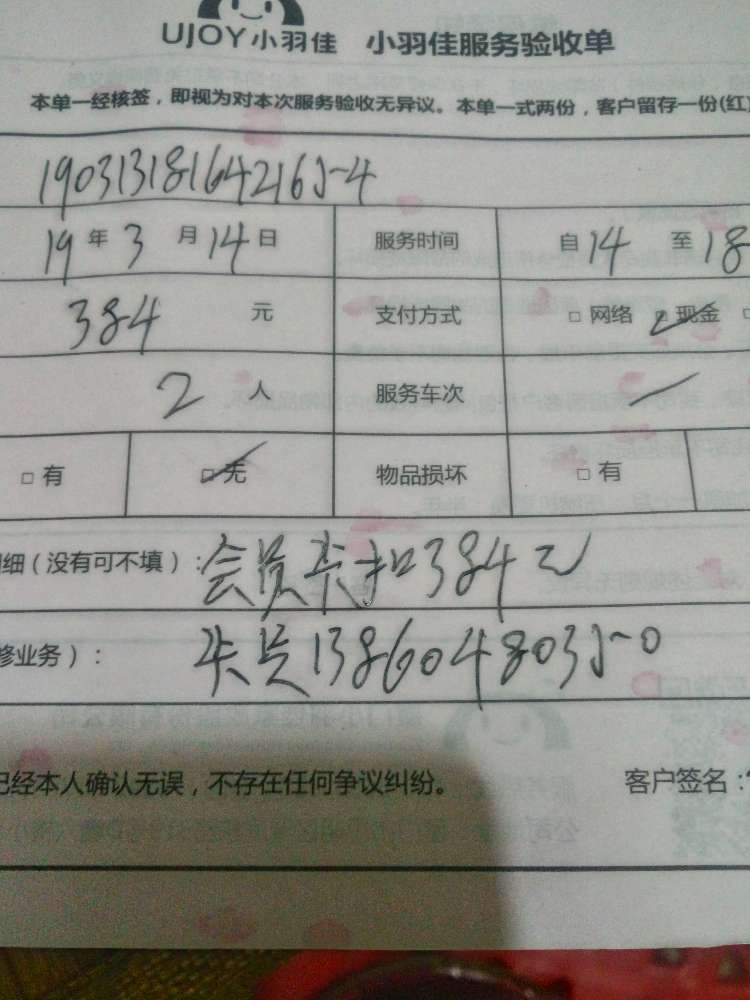 UJOY小羽佳 小羽佳服务验收单
本单一经核签，即视为对本次服务验收无异议。本单一式两份，客户留存一份(红
190313181642165-4
19年3月14日 服务时间 自14至18
384元 支付方式 □网络 ☑现金
2人 服务车次
□有 ☑无 物品损坏 □有
细（没有可不填）：会员卡扣384元
修业务）：卡号13860480350
已经本人确认无误，不存在任何争议纠纷。 客户签名：